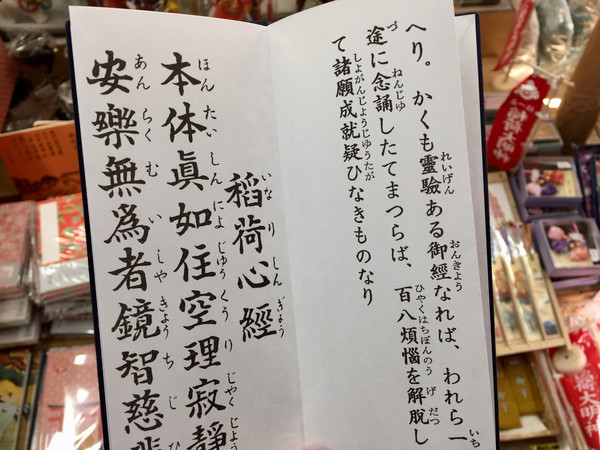 へり。かくも靈驗ある御經なれば、われら一
途に念誦したてまつらば、百八煩惱を解脱し
て諸願成就疑ひなきものなり
稻荷心經
本体眞如住空理寂靜
安樂無爲者鏡智慈悲